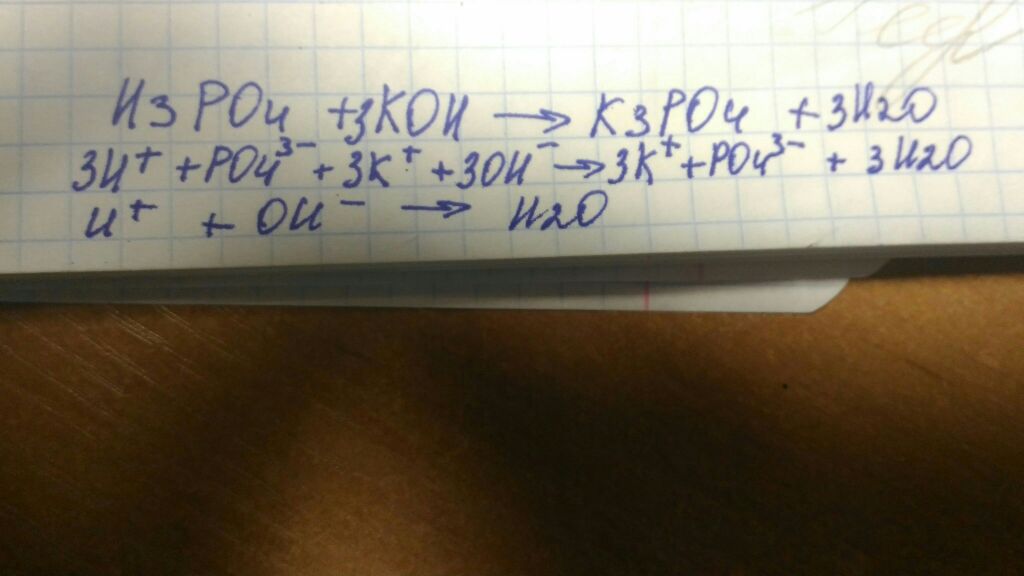 H3PO4 +3KOH → K3PO4 +3H2O
3H⁺ +PO4³⁻ +3K⁺ +3OH⁻ →3K⁺+PO4³⁻ + 3H2O
H⁺ + OH⁻ → H2O